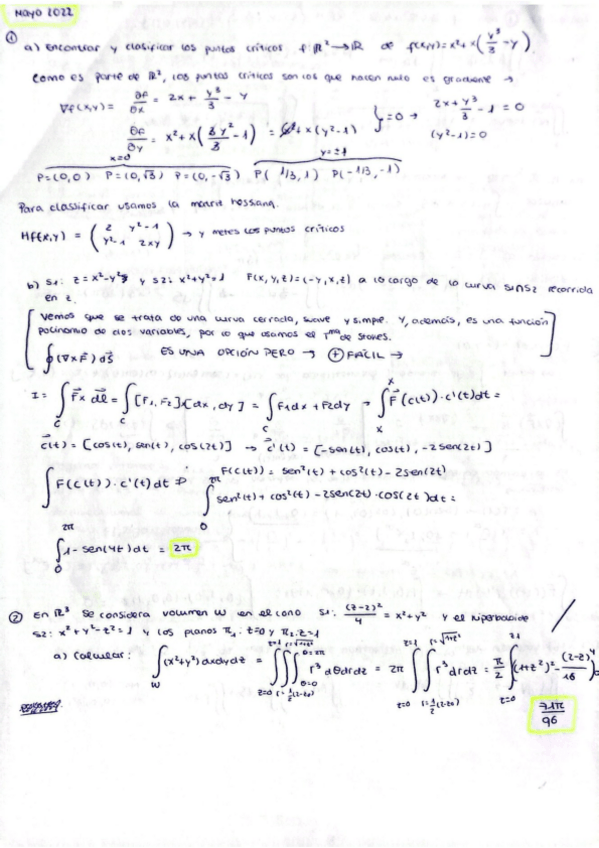 Mayo 2022
① a) Encontrar y clasificar los puntos críticos f: ℝ² → ℝ de f(x,y) = x² + x(y³/3 - y).
Como es parte de ℝ², los puntos críticos son los que hacen nulo el gradiente →
∇f(x,y) = ∂f/∂x = 2x + y³/3 - y
∂f/∂y = x² + x(3y²/3 - 1) = + x(y²-1) } = 0 → 2x + y³/3 - 1 = 0
(y²-1) = 0
x=0 y=±1
P=(0,0) P=(0,√3) P=(0,-√3) P(1/3,1) P(-1/3,-1)
Para classificar usamos la matriz hessiana.
Hf(x,y) = ( 2 y²-1
y²-1 2xy ) → y metes los puntos críticos
b) S1: z = x²-y² y S2: x²+y²=1 F(x,y,z) = (-y,x,z) a lo largo de la curva S1∩S2 recorrida
en z.
[ Vemos que se trata de una curva cerrada, suave y simple. Y, además, es una función
polinomio de dos variables, por lo que usamos el Tma de Stokes.
∮(∇×F) ds ES UNA OPCIÓN PERO → ⊕ FÁCIL → ]
I = ∫c F× dl = ∫c [F1, F2]·[dx, dy] = ∫c F1dx + F2dy → ∫ F(c(t))·c'(t)dt =
c(t) = [cos(t), sen(t), cos(2t)] → c'(t) = [-sen(t), cos(t), -2sen(2t)]
F(c(t)) = sen²(t) + cos²(t) - 2sen(2t)
∫ F(c(t))·c'(t)dt ⇒ ∫₀^2π sen²(t) + cos²(t) - 2sen(2t)·cos(2t)dt =
∫₀^2π 1 - sen(4t)dt = 2π
② En ℝ³ se considera volumen W en el cono S1: (z-2)²/4 = x²+y² y el hiperboloide
S2: x²+y²-z²=1 y los planos π1: z=0 y π2: z=1
a) Calcular: ∫W (x²+y²)dxdydz = ∫z=0^z=1 ∫r=½(2-z)^r=√(1+z²) ∫θ=0^θ=2π r³dθdrdz = 2π ∫z=0^z=1 ∫r=½(2-z)^r=√(1+z²) r³drdz = π/2 ∫z=0^z=1 (1+z²)² - (2-z)⁴/16
71π/96